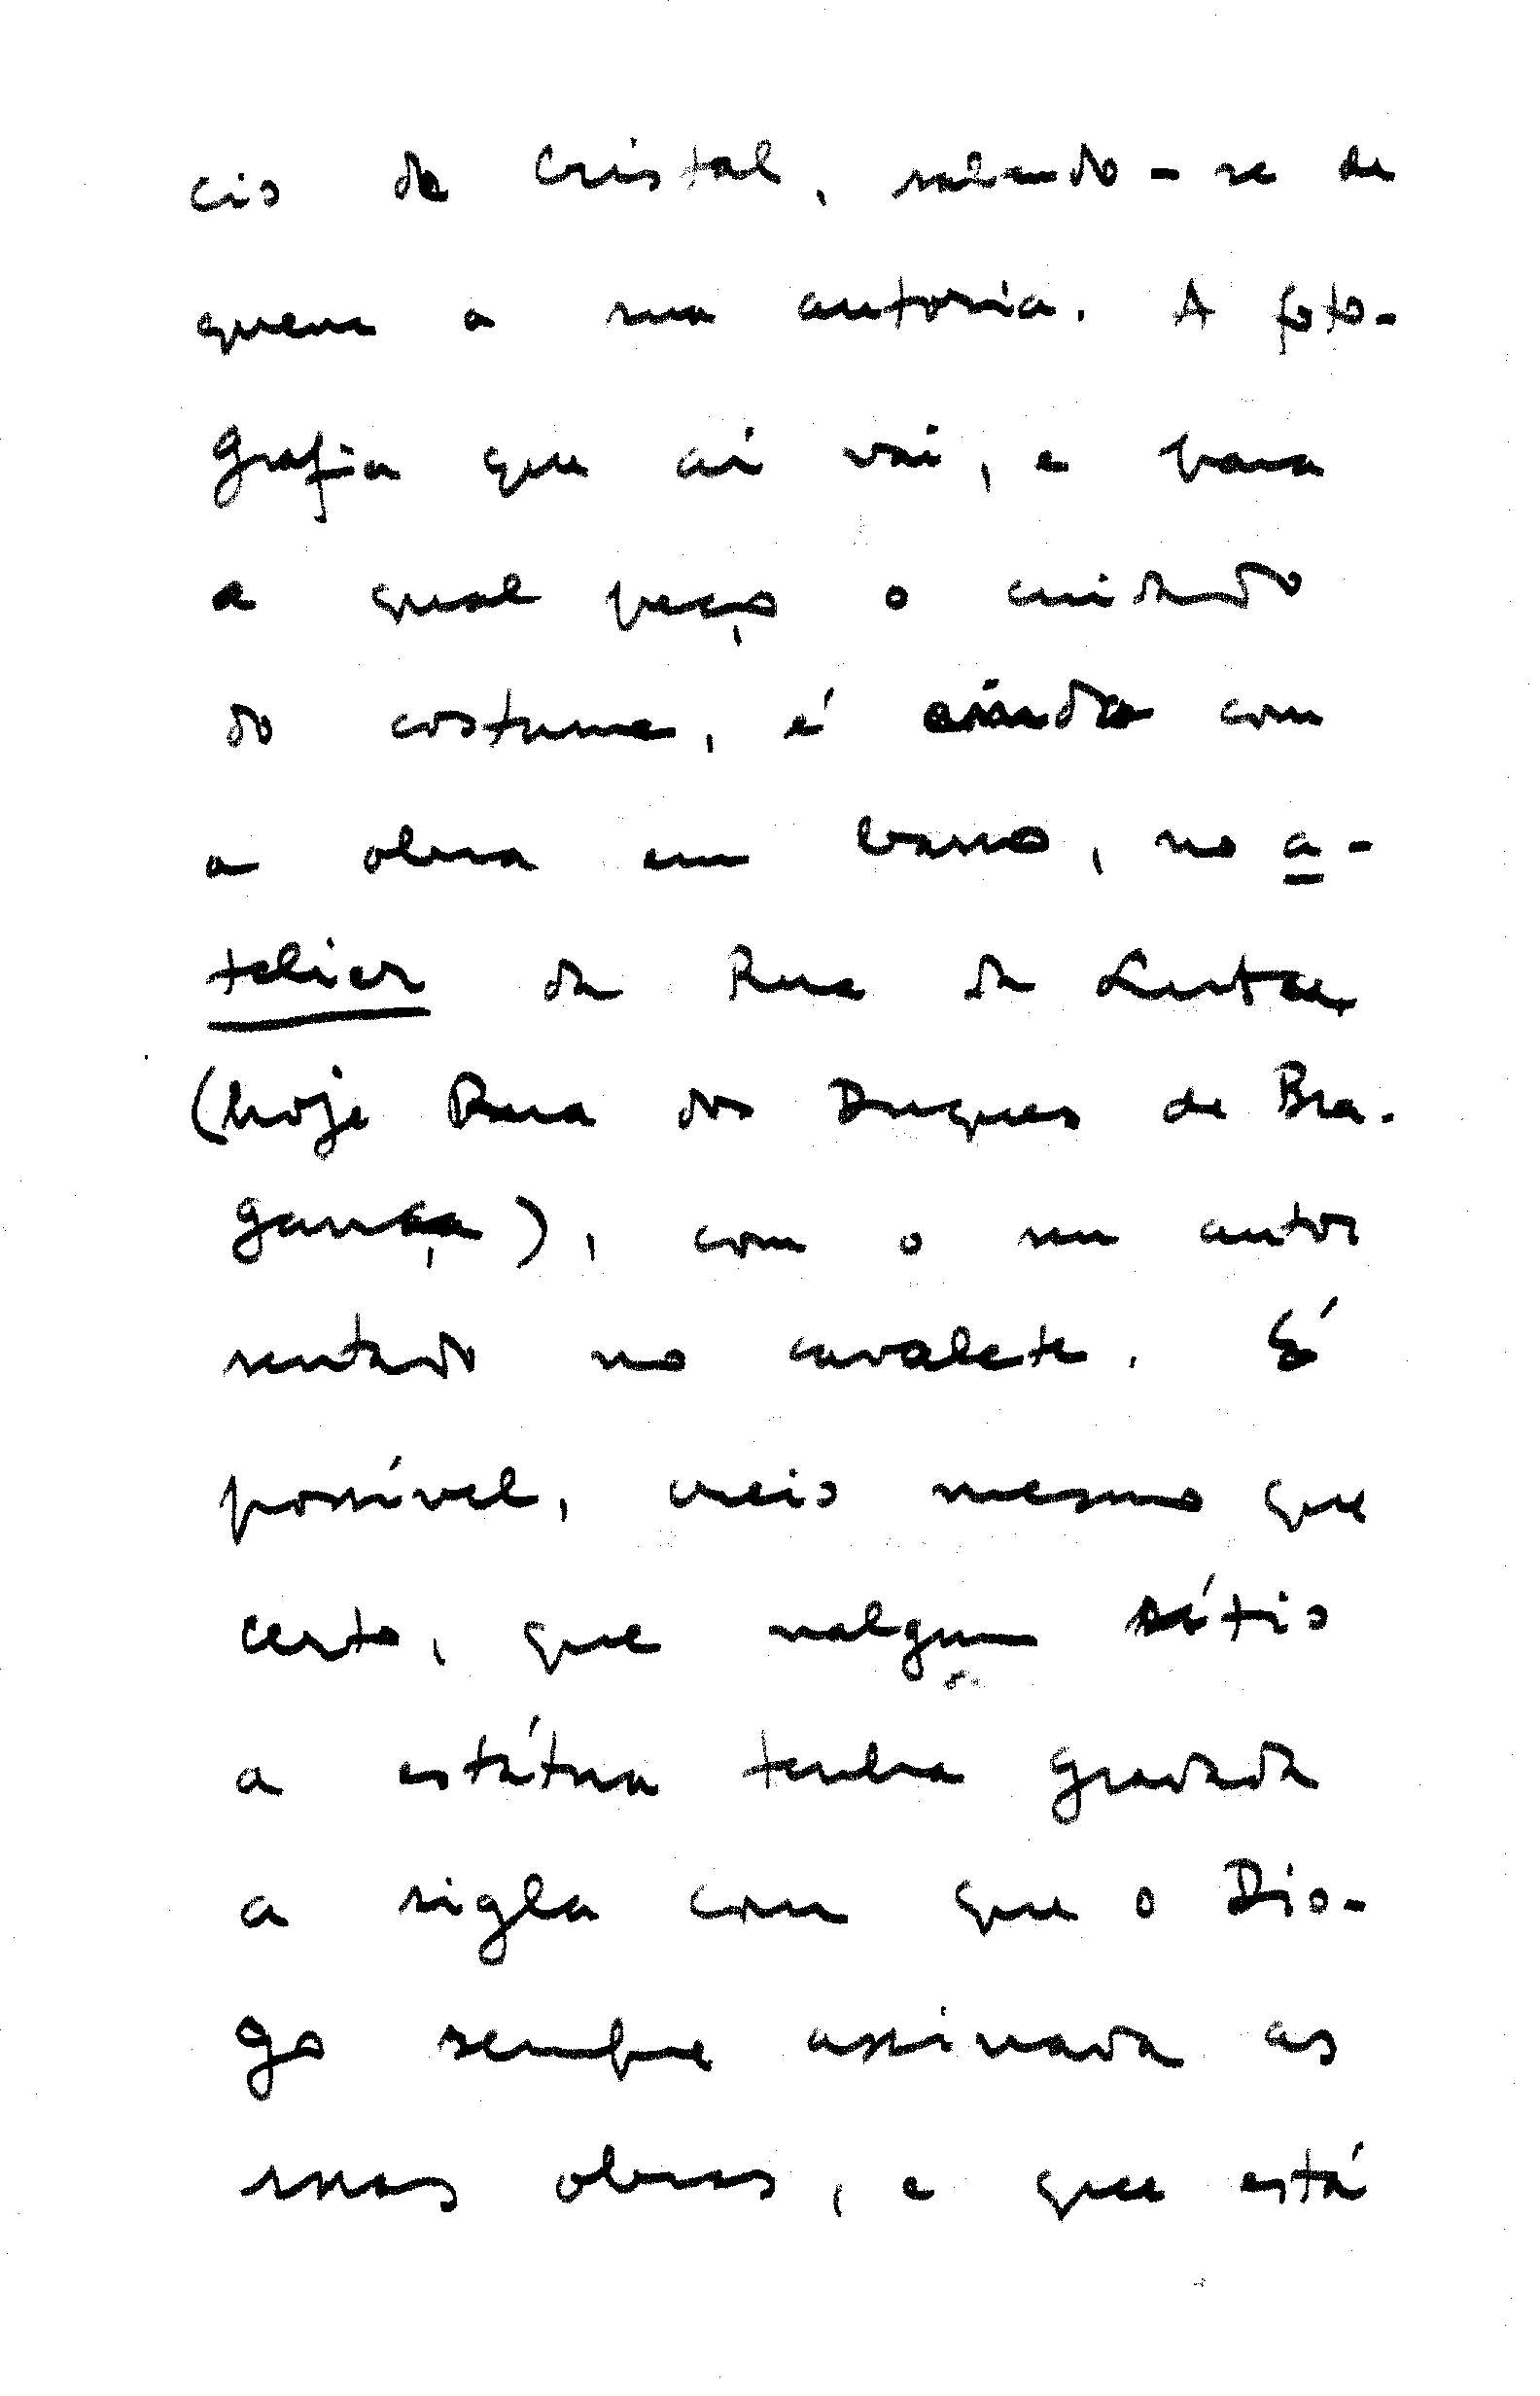 cio de Cristal, sabendo-se de
quem a sua autoria. A foto-
grafia que aí vai, e para
a qual peço o cuidado
do costume, é ainda com
a obra em barro, no a-
telier da Rua da
(hoje Rua dos Duques de Bra-
gança), com o seu autor
sentado no cavalete. É
possível, creio mesmo que
certo, que nalgum sítio
a estátua tenha gravada
a sigla com que o Dio-
go sempre assinava as
suas obras, e que está